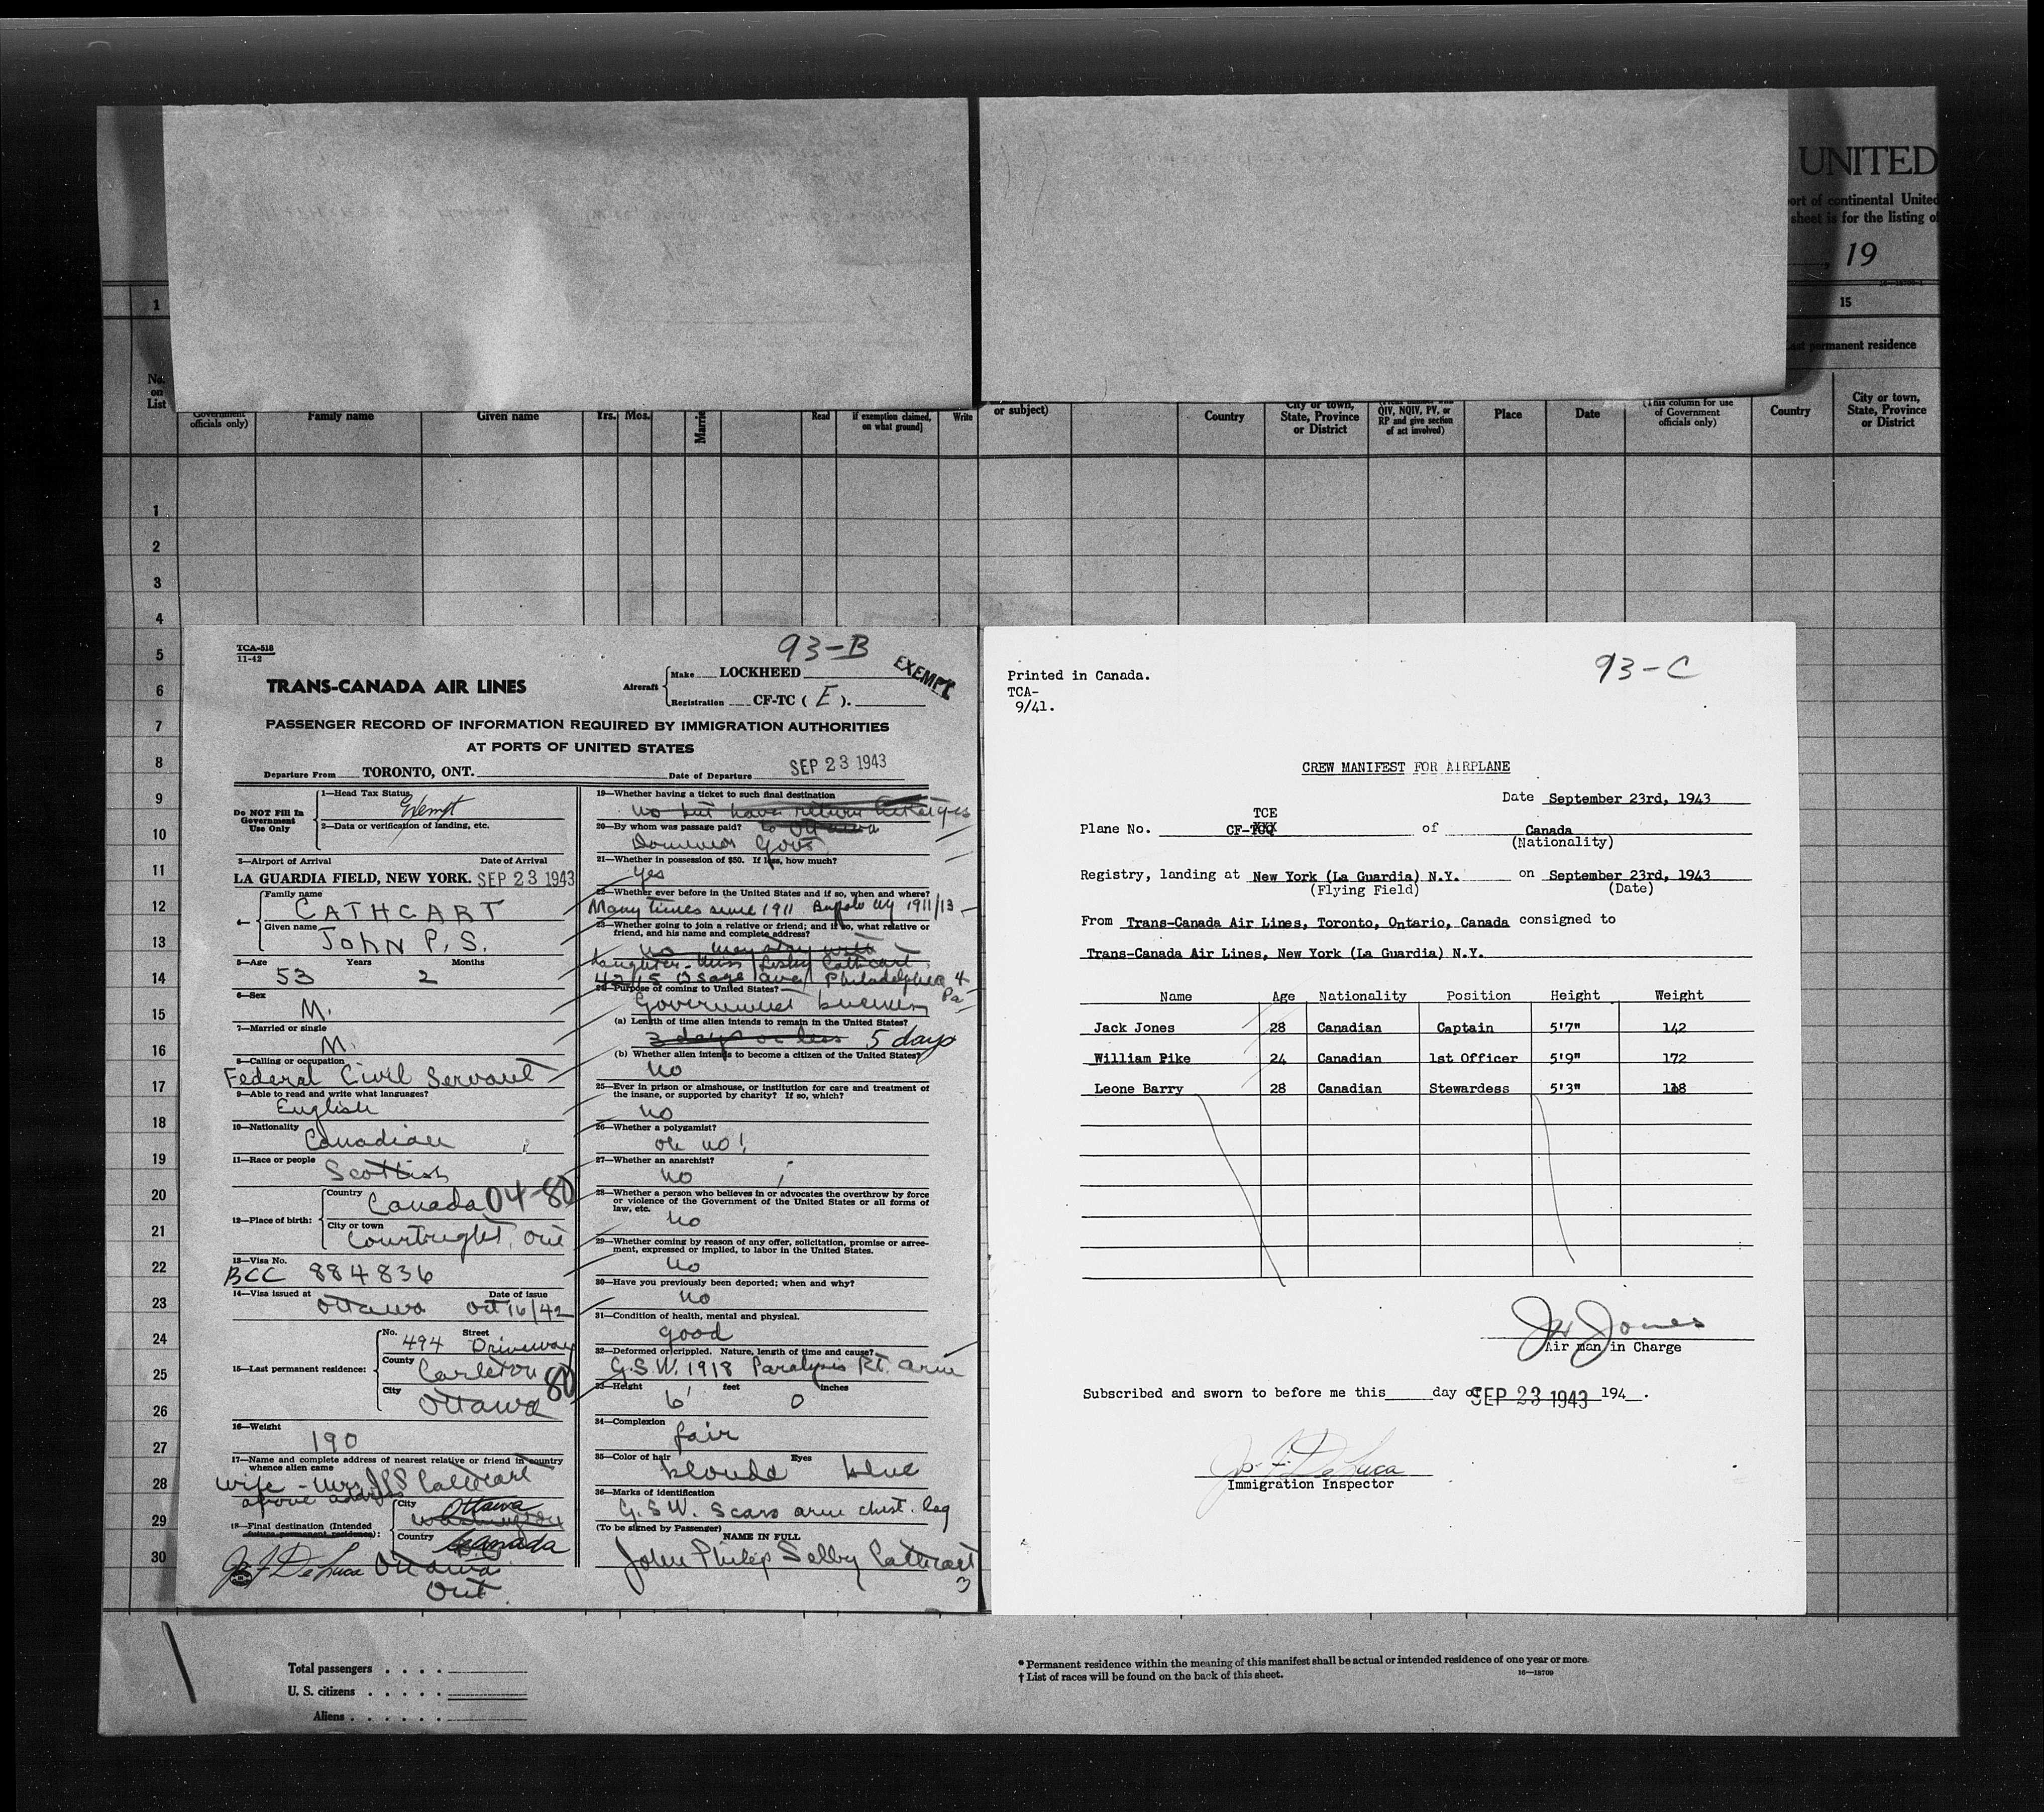 UNITED
ort of continental United
sheet is for the listing of
, 19
1
15
permanent residence
No. on List
Government officials only)
Family name
Given name
Yrs.
Mos.
Read
if exemption claimed, on what ground]
Write
or subject)
Country
City or town, State, Province or District
QIV, NQIV, PV, or RP and give section of act involved)
Place
Date
(This column for use of Government officials only)
Country
City or town, State, Province or District
1
2
3
4
5
6
7
8
9
10
11
12
13
14
15
16
17
18
19
20
21
22
23
24
25
26
27
28
29
30
TCA-518
11-42
93-B
EXEMPT
TRANS-CANADA AIR LINES
Aircraft
Make LOCKHEED
Registration CF-TC ( E ).
PASSENGER RECORD OF INFORMATION REQUIRED BY IMMIGRATION AUTHORITIES
AT PORTS OF UNITED STATES
Departure From TORONTO, ONT. Date of Departure SEP 23 1943
Do NOT Fill In Government Use Only
1—Head Tax Status
Exempt
2—Data or verification of landing, etc.
3—Airport of Arrival Date of Arrival
LA GUARDIA FIELD, NEW YORK. SEP 23 1943
4—
Family name
CATHCART
Given name
JOHN P. S.
5—Age Years Months
53 2
6—Sex
M.
7—Married or single
M.
8—Calling or occupation
Federal Civil Servant
9—Able to read and write what languages?
English
10—Nationality
Canadian
11—Race or people
Scottish
12—Place of birth:
Country
Canada 04-80
City or town
Courtright, Ont
13—Visa No.
BCC 884836
14—Visa issued at Date of issue
Ottawa Oct 16/42
15—Last permanent residence:
No. Street
494 Driveway
County
Carleton 80
City
Ottawa
16—Weight
190
17—Name and complete address of nearest relative or friend in country
whence alien came
Wife - Mrs. JPS Cathcart
above address
18—Final destination (Intended
future permanent residence):
City
Ottawa
Washington
Country
Canada
Jos F DeLuca Ottawa
Ont.
19—Whether having a ticket to such final destination
No but have return
20—By whom was passage paid? to Ottawa
Dominion Govt
21—Whether in possession of $50. If less, how much?
Yes
22—Whether ever before in the United States and if so, when and where?
Many times since 1911 Buffalo NY 1911/13
23—Whether going to join a relative or friend; and if so, what relative or
friend, and his name and complete address?
no may stay with
daughter - Miss Cathcart
4215 Osage Ave, Philadelphia 4
Pa
24—Purpose of coming to United States?
Government business
(a) Length of time alien intends to remain in the United States?
3 days or less 5 days
(b) Whether alien intends to become a citizen of the United States?
no
25—Ever in prison or almshouse, or institution for care and treatment of
the insane, or supported by charity? If so, which?
no
26—Whether a polygamist?
oh no!
27—Whether an anarchist?
no
28—Whether a person who believes in or advocates the overthrow by force
or violence of the Government of the United States or all forms of
law, etc.
no
29—Whether coming by reason of any offer, solicitation, promise or agree-
ment, expressed or implied, to labor in the United States.
no
30—Have you previously been deported; when and why?
no
31—Condition of health, mental and physical.
good
32—Deformed or crippled. Nature, length of time and cause?
G.S.W. 1918 Paralysis Rt. arm
33—Height feet inches
6' 0
34—Complexion
fair
35—Color of hair Eyes
blonde blue
36—Marks of identification
G.S.W. Scars arm chest. leg
(To be signed by Passenger)
NAME IN FULL
John Philip Selby Cathcart
3
93-C
Printed in Canada.
TCA-
9/41.
CREW MANIFEST FOR AIRPLANE
Date September 23rd, 1943
TCE
Plane No. CF- of Canada
(Nationality)
Registry, landing at New York (La Guardia) N.Y. on September 23rd, 1943
(Flying Field) (Date)
From Trans-Canada Air Lines, Toronto, Ontario, Canada consigned to
Trans-Canada Air Lines, New York (La Guardia) N.Y.
Name Age Nationality Position Height Weight
Jack Jones 28 Canadian Captain 5'7" 142
William Pike 24 Canadian 1st Officer 5'9" 172
Leone Barry 28 Canadian Stewardess 5'3" 118
JW Jones
Air man in Charge
Subscribed and sworn to before me this day of SEP 23 1943 194 .
Jos F. DeLuca
Immigration Inspector
Total passengers . . . .
U. S. citizens . . . . .
Aliens . . . . . .
* Permanent residence within the meaning of this manifest shall be actual or intended residence of one year or more.
† List of races will be found on the back of this sheet.
16—18709